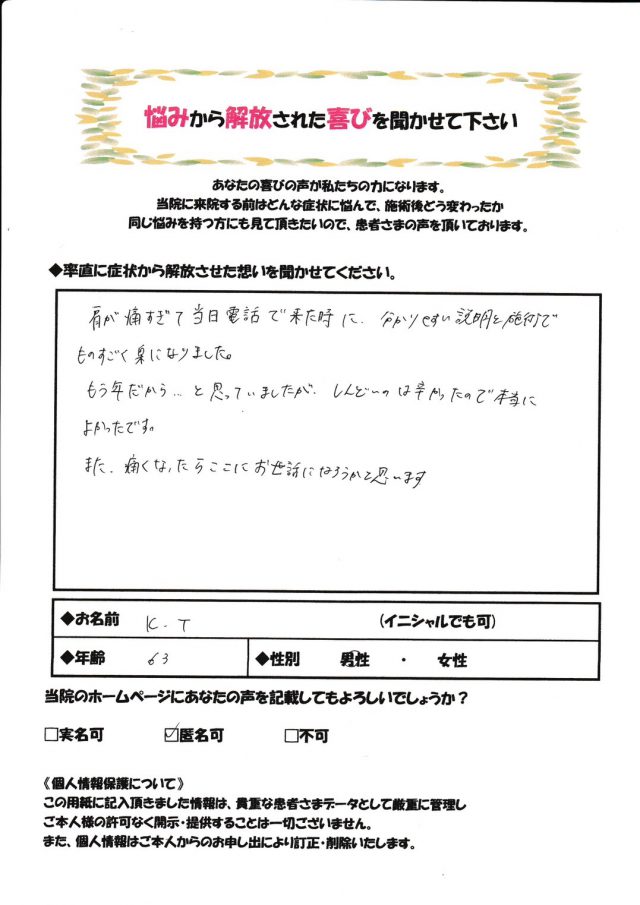 悩みから解放された喜びを聞かせて下さい
あなたの喜びの声が私たちの力になります。
当院に来院する前はどんな症状に悩んで、施術後どう変わったか
同じ悩みを持つ方にも見て頂きたいので、患者さまの声を頂いております。
◆率直に症状から解放させた想いを聞かせてください。
肩が痛すぎて当日電話で来た時に、分かりやすい説明と施術で
ものすごく楽になりました。
もう年だから…と思っていましたが、しんどいのは辛かったので本当に
よかったです。
また、痛くなったらここにお世話になろうかと思います
◆お名前 K.T (イニシャルでも可)
◆年齢 63 ◆性別 男性 ・ 女性
当院のホームページにあなたの声を記載してもよろしいでしょうか？
□実名可 ☑匿名可 □不可
《個人情報保護について》
この用紙に記入頂きました情報は、貴重な患者さまデータとして厳重に管理し
ご本人様の許可なく開示・提供することは一切ございません。
また、個人情報はご本人からのお申し出により訂正・削除いたします。